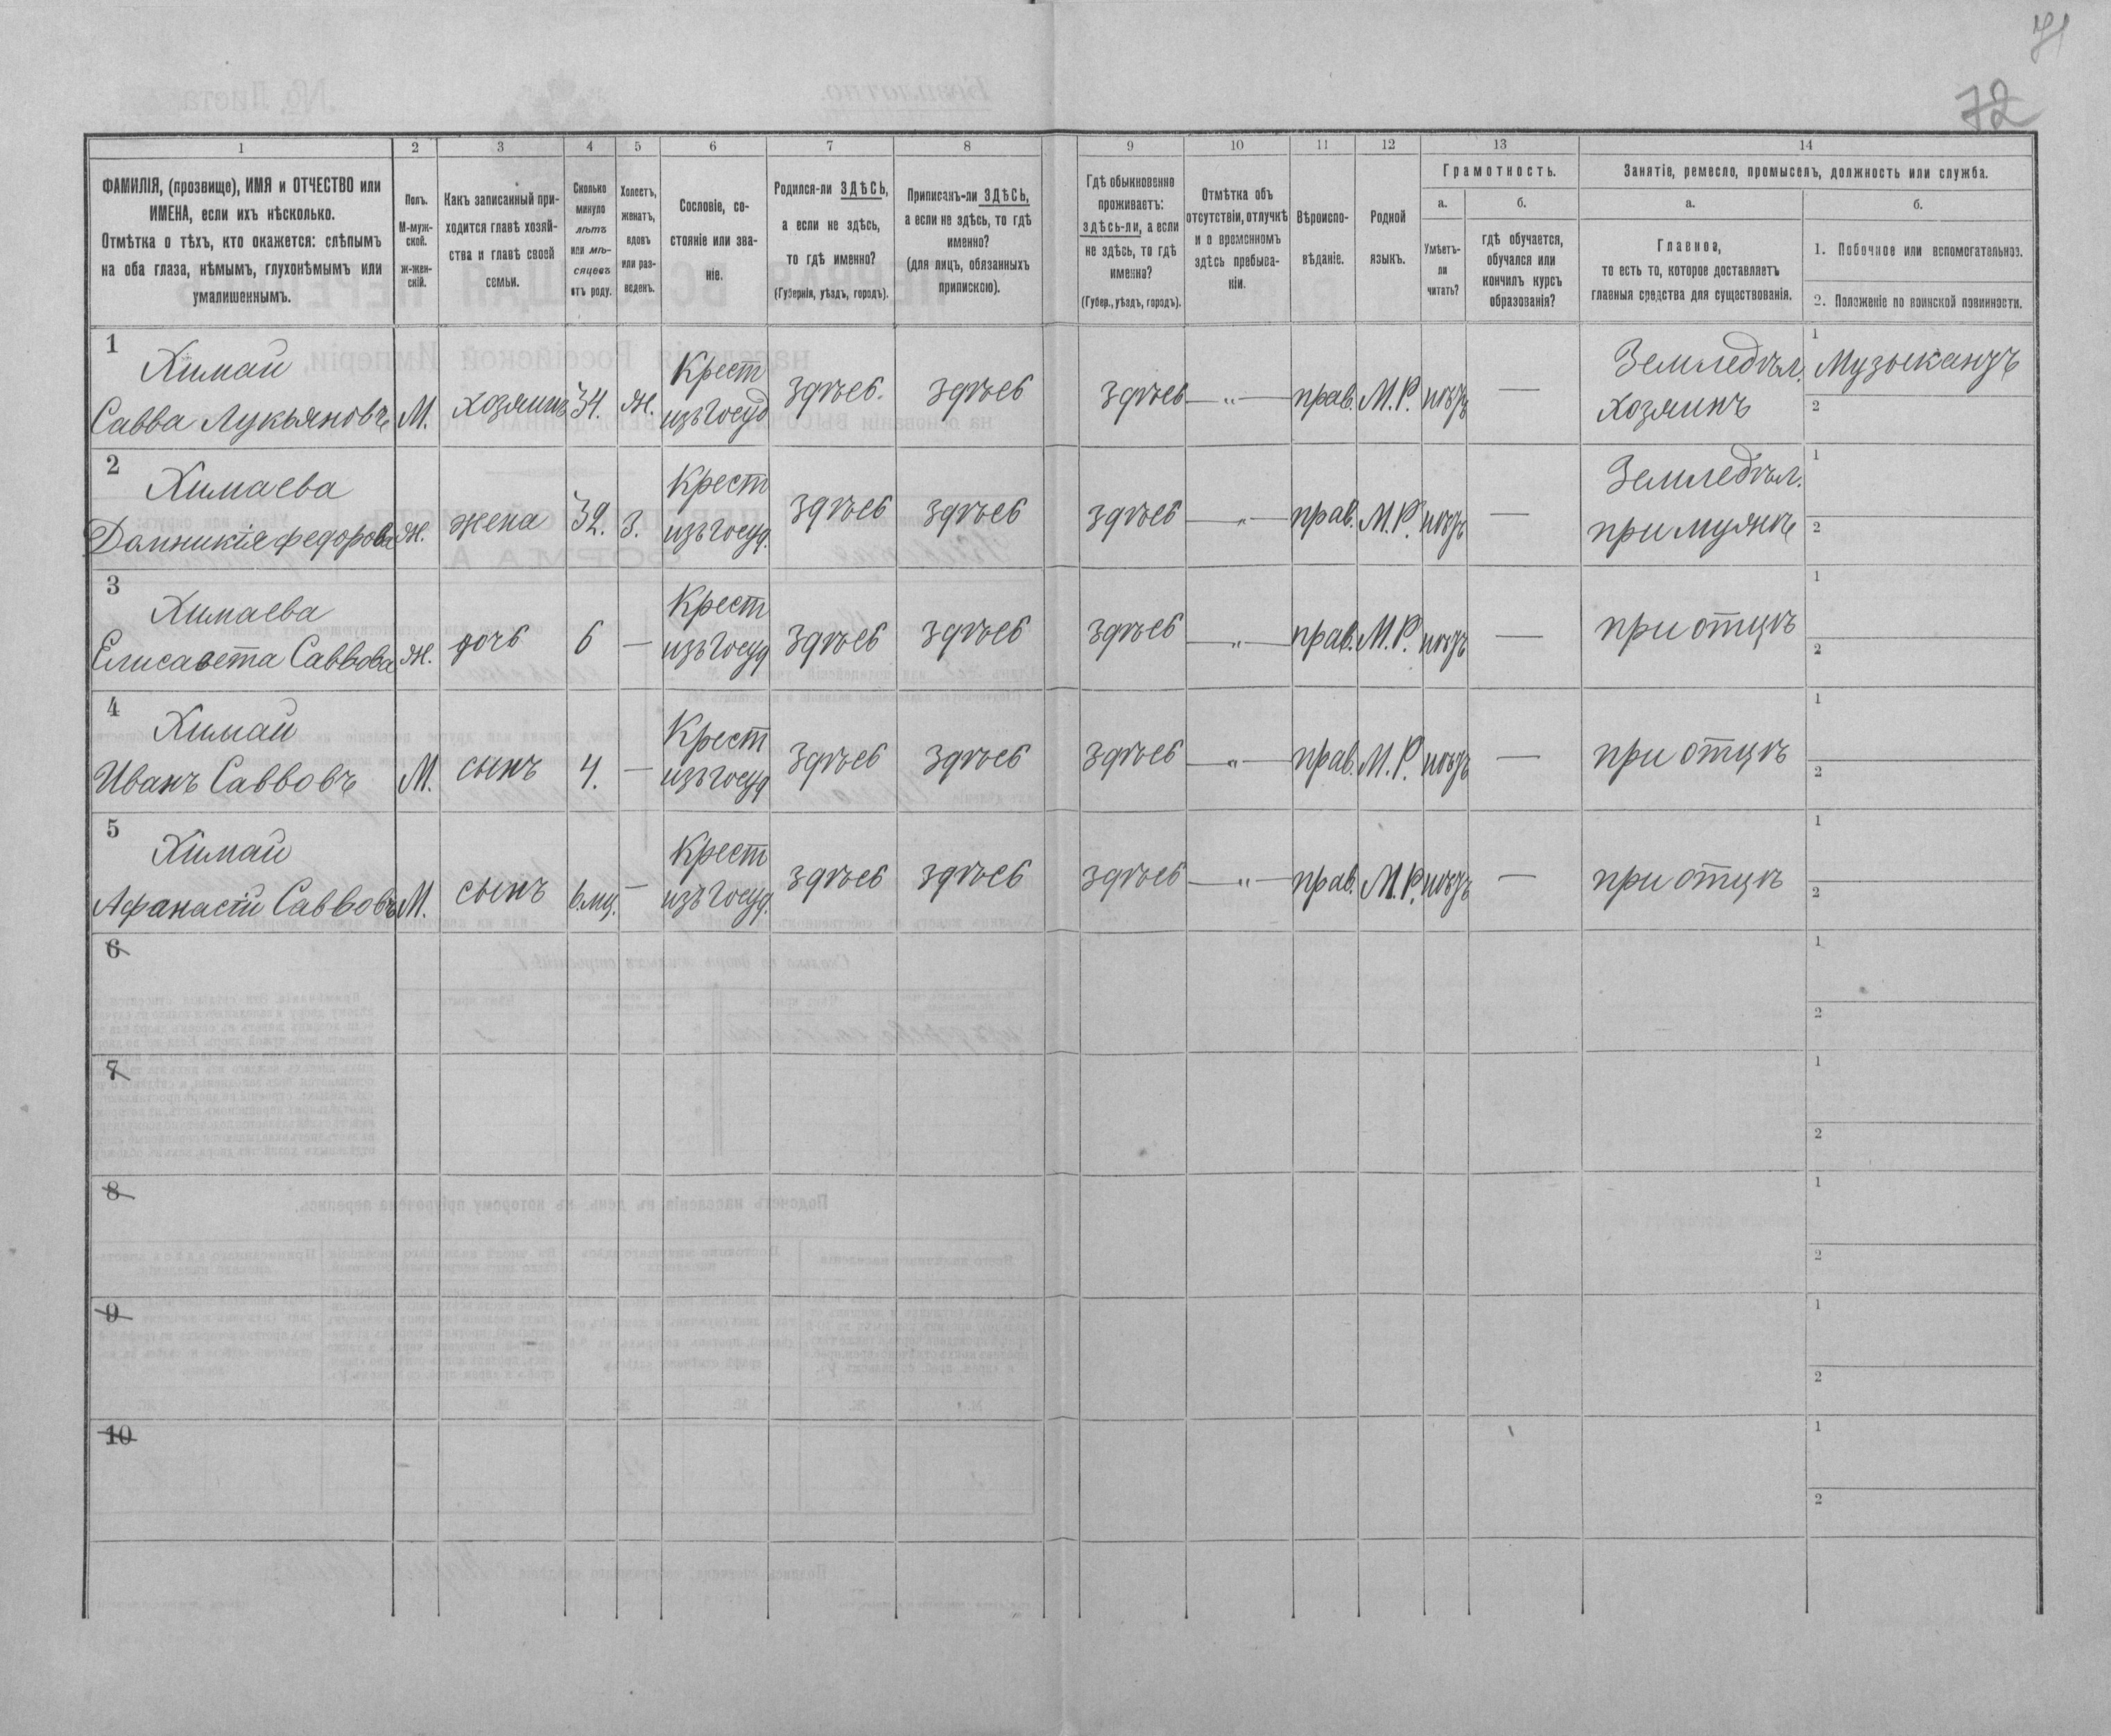 71
72
1 2 3 4 5 6 7 8 9 10 11 12 13 14
ФАМИЛІЯ, (прозвище), ИМЯ и ОТЧЕСТВО или
ИМЕНА, если ихъ нѣсколько.
Отмѣтка о тѣхъ, кто окажется: слѣпымъ
на оба глаза, нѣмымъ, глухонѣмымъ или
умалишеннымъ.
Полъ.
М-муж-
ской.
ж-жен-
скій.
Какъ записанный при-
ходится главѣ хозяй-
ства и главѣ своей
семьи.
Сколько
минуло
лѣтъ
или мѣ-
сяцевъ
отъ роду.
Холостъ,
женатъ,
вдовъ
или раз-
веденъ.
Сословіе, со-
стояніе или зва-
ніе.
Родился-ли ЗДѢСЬ,
а если не здѣсь,
то гдѣ именно?
(Губернія, уѣздъ, городъ).
Приписанъ-ли ЗДѢСЬ,
а если не здѣсь, то гдѣ
именно?
(для лицъ, обязанныхъ
припискою).
Гдѣ обыкновенно
проживаетъ:
здѣсь-ли, а если
не здѣсь, то гдѣ
именно?
(Губер., уѣздъ, городъ).
Отмѣтка объ
отсутствіи, отлучкѣ
и о временномъ
здѣсь пребыва-
ніи.
Вѣроиспо-
вѣданіе.
Родной
языкъ.
Грамотность.
а.
Умѣетъ-
ли
читать?
б.
гдѣ обучается,
обучался или
кончилъ курсъ
образованія?
Занятіе, ремесло, промыселъ, должность или служба.
а.
Главное,
то есть то, которое доставляетъ
главныя средства для существованія.
б.
1. Побочное или вспомогательное.
2. Положеніе по воинской повинности.
1
Химай
Савва Лукьяновъ
М.
хозяинъ
34.
ж.
Крест
изъ Госуд
здѣсь.
здѣсь
здѣсь
— „ —
прав.
М.Р.
нѣтъ
—
Земледѣл.
хозяинъ
1 Музыкантъ
2
2
Химаева
Домникія Федорова
ж.
жена
32.
З.
Крест
изъ Госуд.
здѣсь
здѣсь
здѣсь
— „ —
прав.
М.Р.
нѣтъ
—
Земледѣл.
при мужѣ
1
2
3
Химаева
Елисавета Саввова
ж.
дочь
6
—
Крест
изъ Госуд
здѣсь
здѣсь
здѣсь
— „ —
прав.
М.Р.
нѣтъ
—
при отцѣ
1
2
4
Химай
Иванъ Саввовъ
М.
сынъ
4.
—
Крест
изъ Госуд
здѣсь
здѣсь
здѣсь
— „ —
прав.
М.Р.
нѣтъ
—
при отцѣ
1
2
5
Химай
Афанасій Саввовъ
М.
сынъ
6.мц.
—
Крест
изъ Госуд.
здѣсь
здѣсь
здѣсь
— „ —
прав.
М.Р.
нѣтъ
—
при отцѣ
1
2
6
1
2
7
1
2
8
1
2
9
1
2
10
1
2